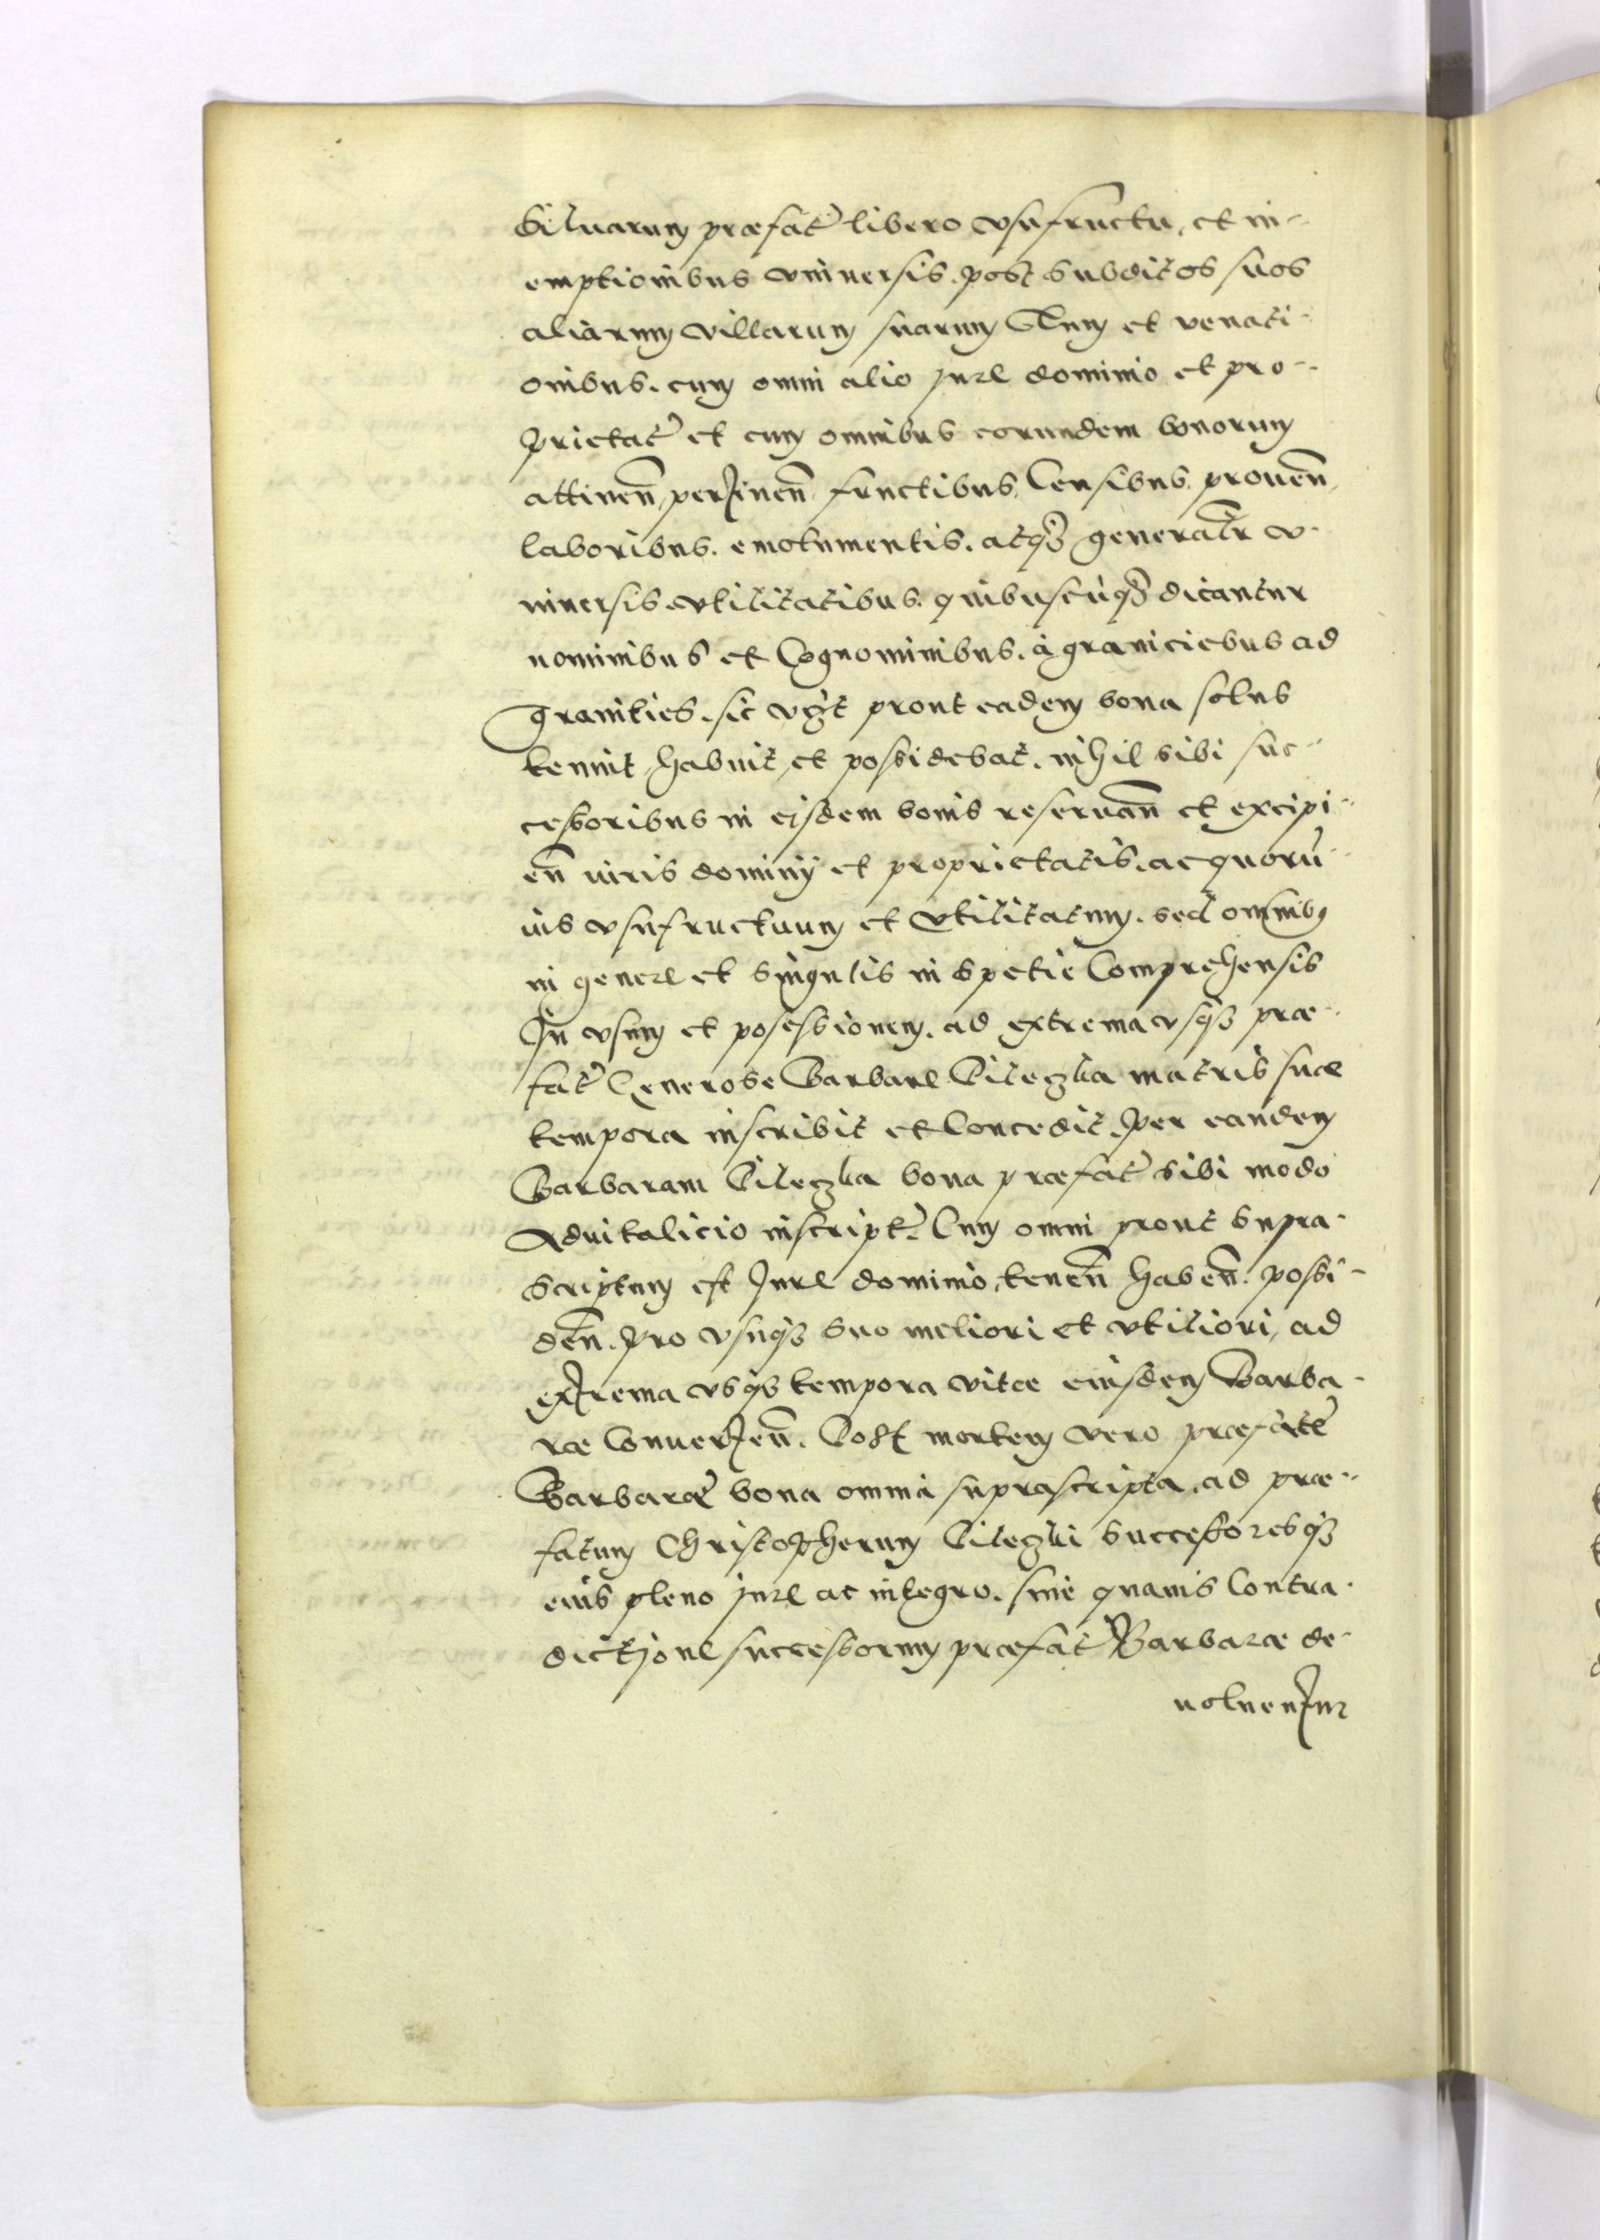 Siluarum præfat libero vsufructu, et in-
emptionibus vniuersis. post subditos suos
aliarum villarum suarum Tum et venati-
onibus. cum omni alio jure dominio et pro-
prietat et cum omnibus eorundem bonorum
attinen, pertinen fructibus, Censibus, prouen,
laboribus. emolumentis. atq3 generalr v-
niuersis vtilitatibus. quibuscuq3 dicantur
nominibus et Cognominibus. à græniciebus ad
granities. sic vt prout eadem bona solus
tenuit, habuit, et possidebat. nihil sibi suc-
cessoribus in eisdem bonis reseruan et excipi-
en iuris dominij et proprietatis. ac quorū-
uis vsufructuum et vtilitatum. sed omnib9
in genere et singulis in spetie Comprehensis
In vsum et posessionem. ad extrema vsq3 præ-
fat Generose Barbare Pileczka matris suæ
tempora inscribit et Concedit. Per eandem
Barbaram Pileczka bona præfat sibi modo
Aduitalicio inscript. Cum omni prout supra-
scriptum est Jure dominio, tenen haben. possi-
den. pro vsuq3 suo meliori et vtiliori, ad
extrema vsq3 tempora vitæ eiusdem Barba-
ræ Conuerten. Post mortem vero præfate
Barbaræ bona omnia suprascripta. ad præ-
fatum Christopherum Pileczki successoresq3
eius pleno jure ac integro. sine quauis Contra-
dictione successorum præfat Barbaræ de-
uoluentur